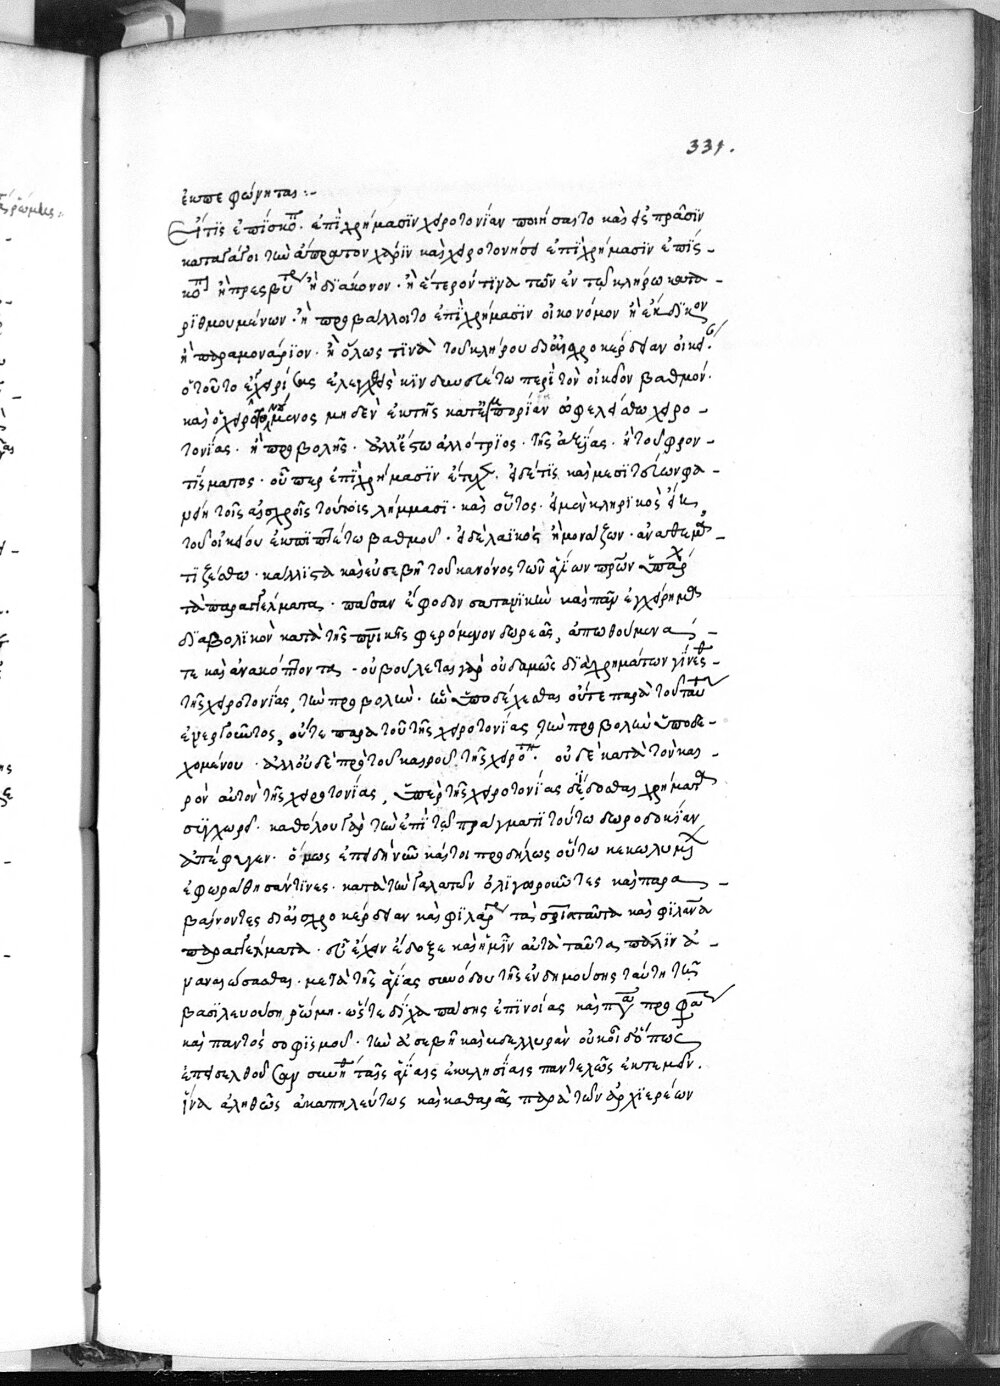 331.
ἐκπεφώνηται :-
Εἴ τις ἐπίσκοπ ἐπὶ χρήμασιν χειροτονίαν ποιήσαιτο καὶ εἰς πρᾶσιν
καταγάγοι τὴν ἄπρατον χάριν καὶ χειροτονήσει ἐπὶ χρήμασιν ἐπίς -
κοπ ἢ πρεσβύτ ἢ διάκονον · ἢ ἕτερόν τινα τῶν ἐν τῷ κλήρω κατα -
ριθμουμένων · ἢ προβάλλοιτο ἐπὶ χρήμασιν οἰκονόμον ἢ ἔκδικον
ἢ παραμονάριον · ἢ ὅλως τινὰ τοῦ κλήρου δι' αἰσχροκέρδειαν οἰκεί
ὁ τοῦτο ἐγχειρήσας ἐλεγχθεὶς κινδυνευέτω περὶ τὸν οἰκεῖον βαθμόν ·
καὶ ὁ χειροτονούμενος μηδὲν ἐκ τῆς κατ' ἐμπορίαν ὠφελείσθω χειρο -
τονίας · ἢ προβολῆς · ἀλλ' ἔστω ἀλλότριος · τῆς ἀξίας · ἢ τοῦ φρον -
τίσματος · οὗπερ ἐπὶ χρήμασιν ἔτυχεν · εἰ δέ τις καὶ μεσιτεύων φα -
νείη τοῖς αἰσχροῖς τούτοις λήμμασι · καὶ οὗτος · εἰ μὲν κληρικὸς εἴη
τοῦ οἰκείου ἐκπιπτέτω βαθμοῦ · εἰ δὲ λαϊκὸς ἢ μονάζων · ἀναθεμα -
τιζέσθω · κάλλιστα καὶ εὐσεβῆ τοῦ κανόνος τῶν ἁγίων πρων ὑπάρχ
τὰ παραγγέλματα · πᾶσαν ἔφοδον σατανικὴν καὶ πᾶν ἐγχείρημα
διαβολικὸν κατὰ τῆς πνικῆς φερόμενον δωρεᾶς, ἀπωθούμενα -
τε καὶ ἀνακόπτοντα · οὐ βούλεται γὰρ οὐδαμῶς διὰ χρημάτων γίνεσθ -
τῆς χειροτονίας, τὴν προβολὴν · ἢ ὑποδέχεσθαι οὔτε παρὰ τοῦ ταύτ
ἐνεργοῦντος, οὔτε παρὰ τοῦ τῆς χειροτονίας τὴν προβολὴν ὑποδε -
χομένου · ἀλλ' οὐδὲ πρὸ τοῦ καιροῦ τῆς χειροτ · οὐδὲ κατὰ τὸν και -
ρὸν αὐτὸν τῆς χειροτονίας, ὑπὲρ τῆς χειροτονίας δίδοσθαι χρήματ
συγχωρεῖ · καθόλου γὰρ τὴν ἐπὶ τῷ πράγματι τούτω δωροδοκίαν
ἀπέφηνεν · ὅμως ἐπειδὴ νῦν καίτοι προδήλως οὕτω κεκωλυμέν
ἐφωράθησάν τινες · κατὰ τὴν Γαλατῶν ὀλιγωροῦντες καὶ παρα -
βαίνοντες δι' αἰσχροκέρδειαν καὶ φιλαργ τὰ σρικα ταῦτα καὶ φιλανα
παραγγέλματα · συνεῖδεν ἔδοξε καὶ ἡμῖν αὐτὰ ταῦτα πάλιν ἀ -
νανεώσασθαι · μετὰ τῆς ἁγίας συνόδου τῆς ἐνδημούσης ταύτη τῇ
βασιλευούση ῥώμη · ὥστε δίχα πάσης ἐπινοίας καὶ παντ προφασ
καὶ παντὸς σοφισμοῦ · τὴν ἀσεβῆ καὶ βδελυρὰν οὐκ οἶδ' ὅπως
ἐπεισελθοῦσαν συνήθ ταῖς ἁγίαις ἐκκλησίαις παντελῶς ἐκτεμεῖν ·
ἵνα ἀληθῶς ἀκαπηλεύτως καὶ καθαρᾶς παρὰ τῶν ἀρχιερέων